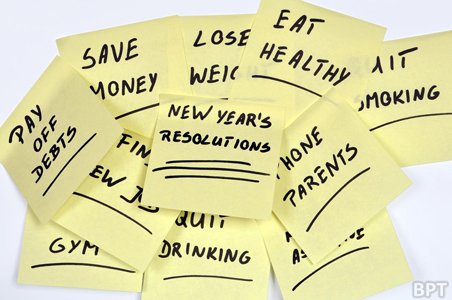 SAVE
MONEY
LOSE
EAT
HEALTHY
SMOKING
PAY
OFF
DEBTS
NEW YEAR'S
RESOLUTIONS
PHONE
PARENTS
NEW JOB
GYM
QUIT
DRINKING
BPT